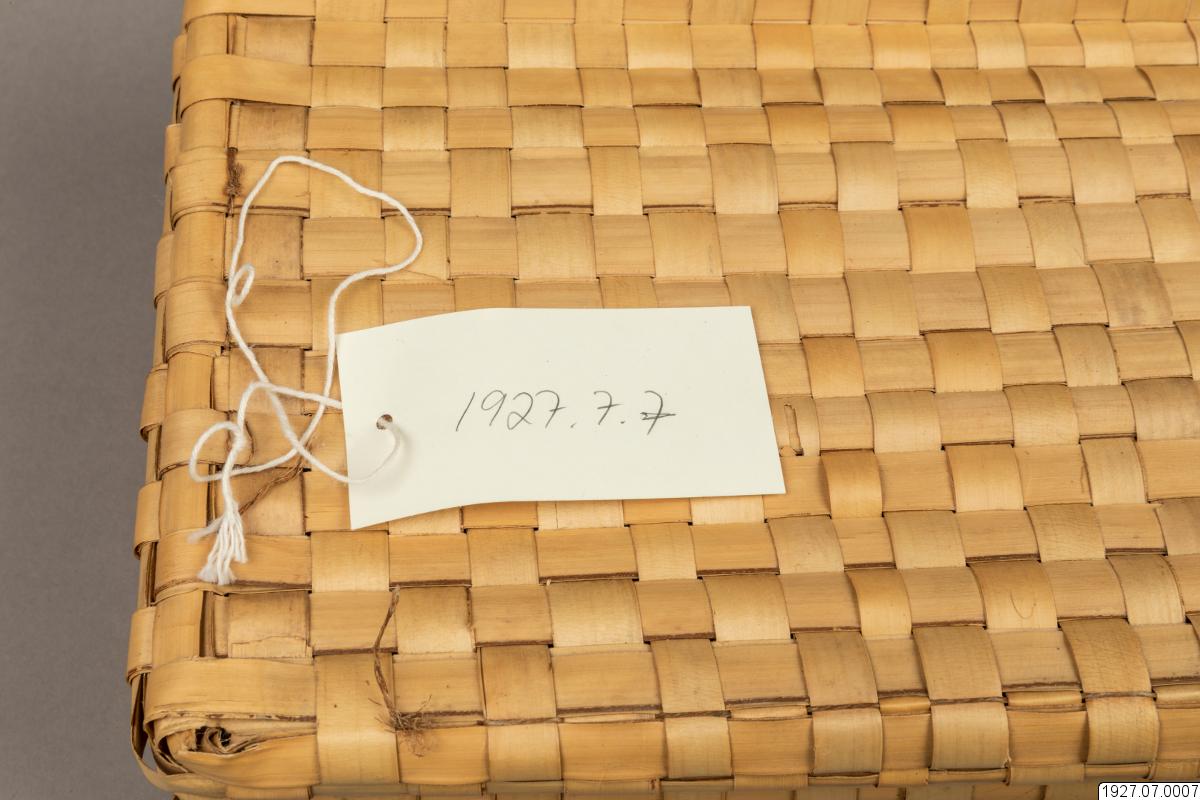 1927.7.7
1927.07.0007